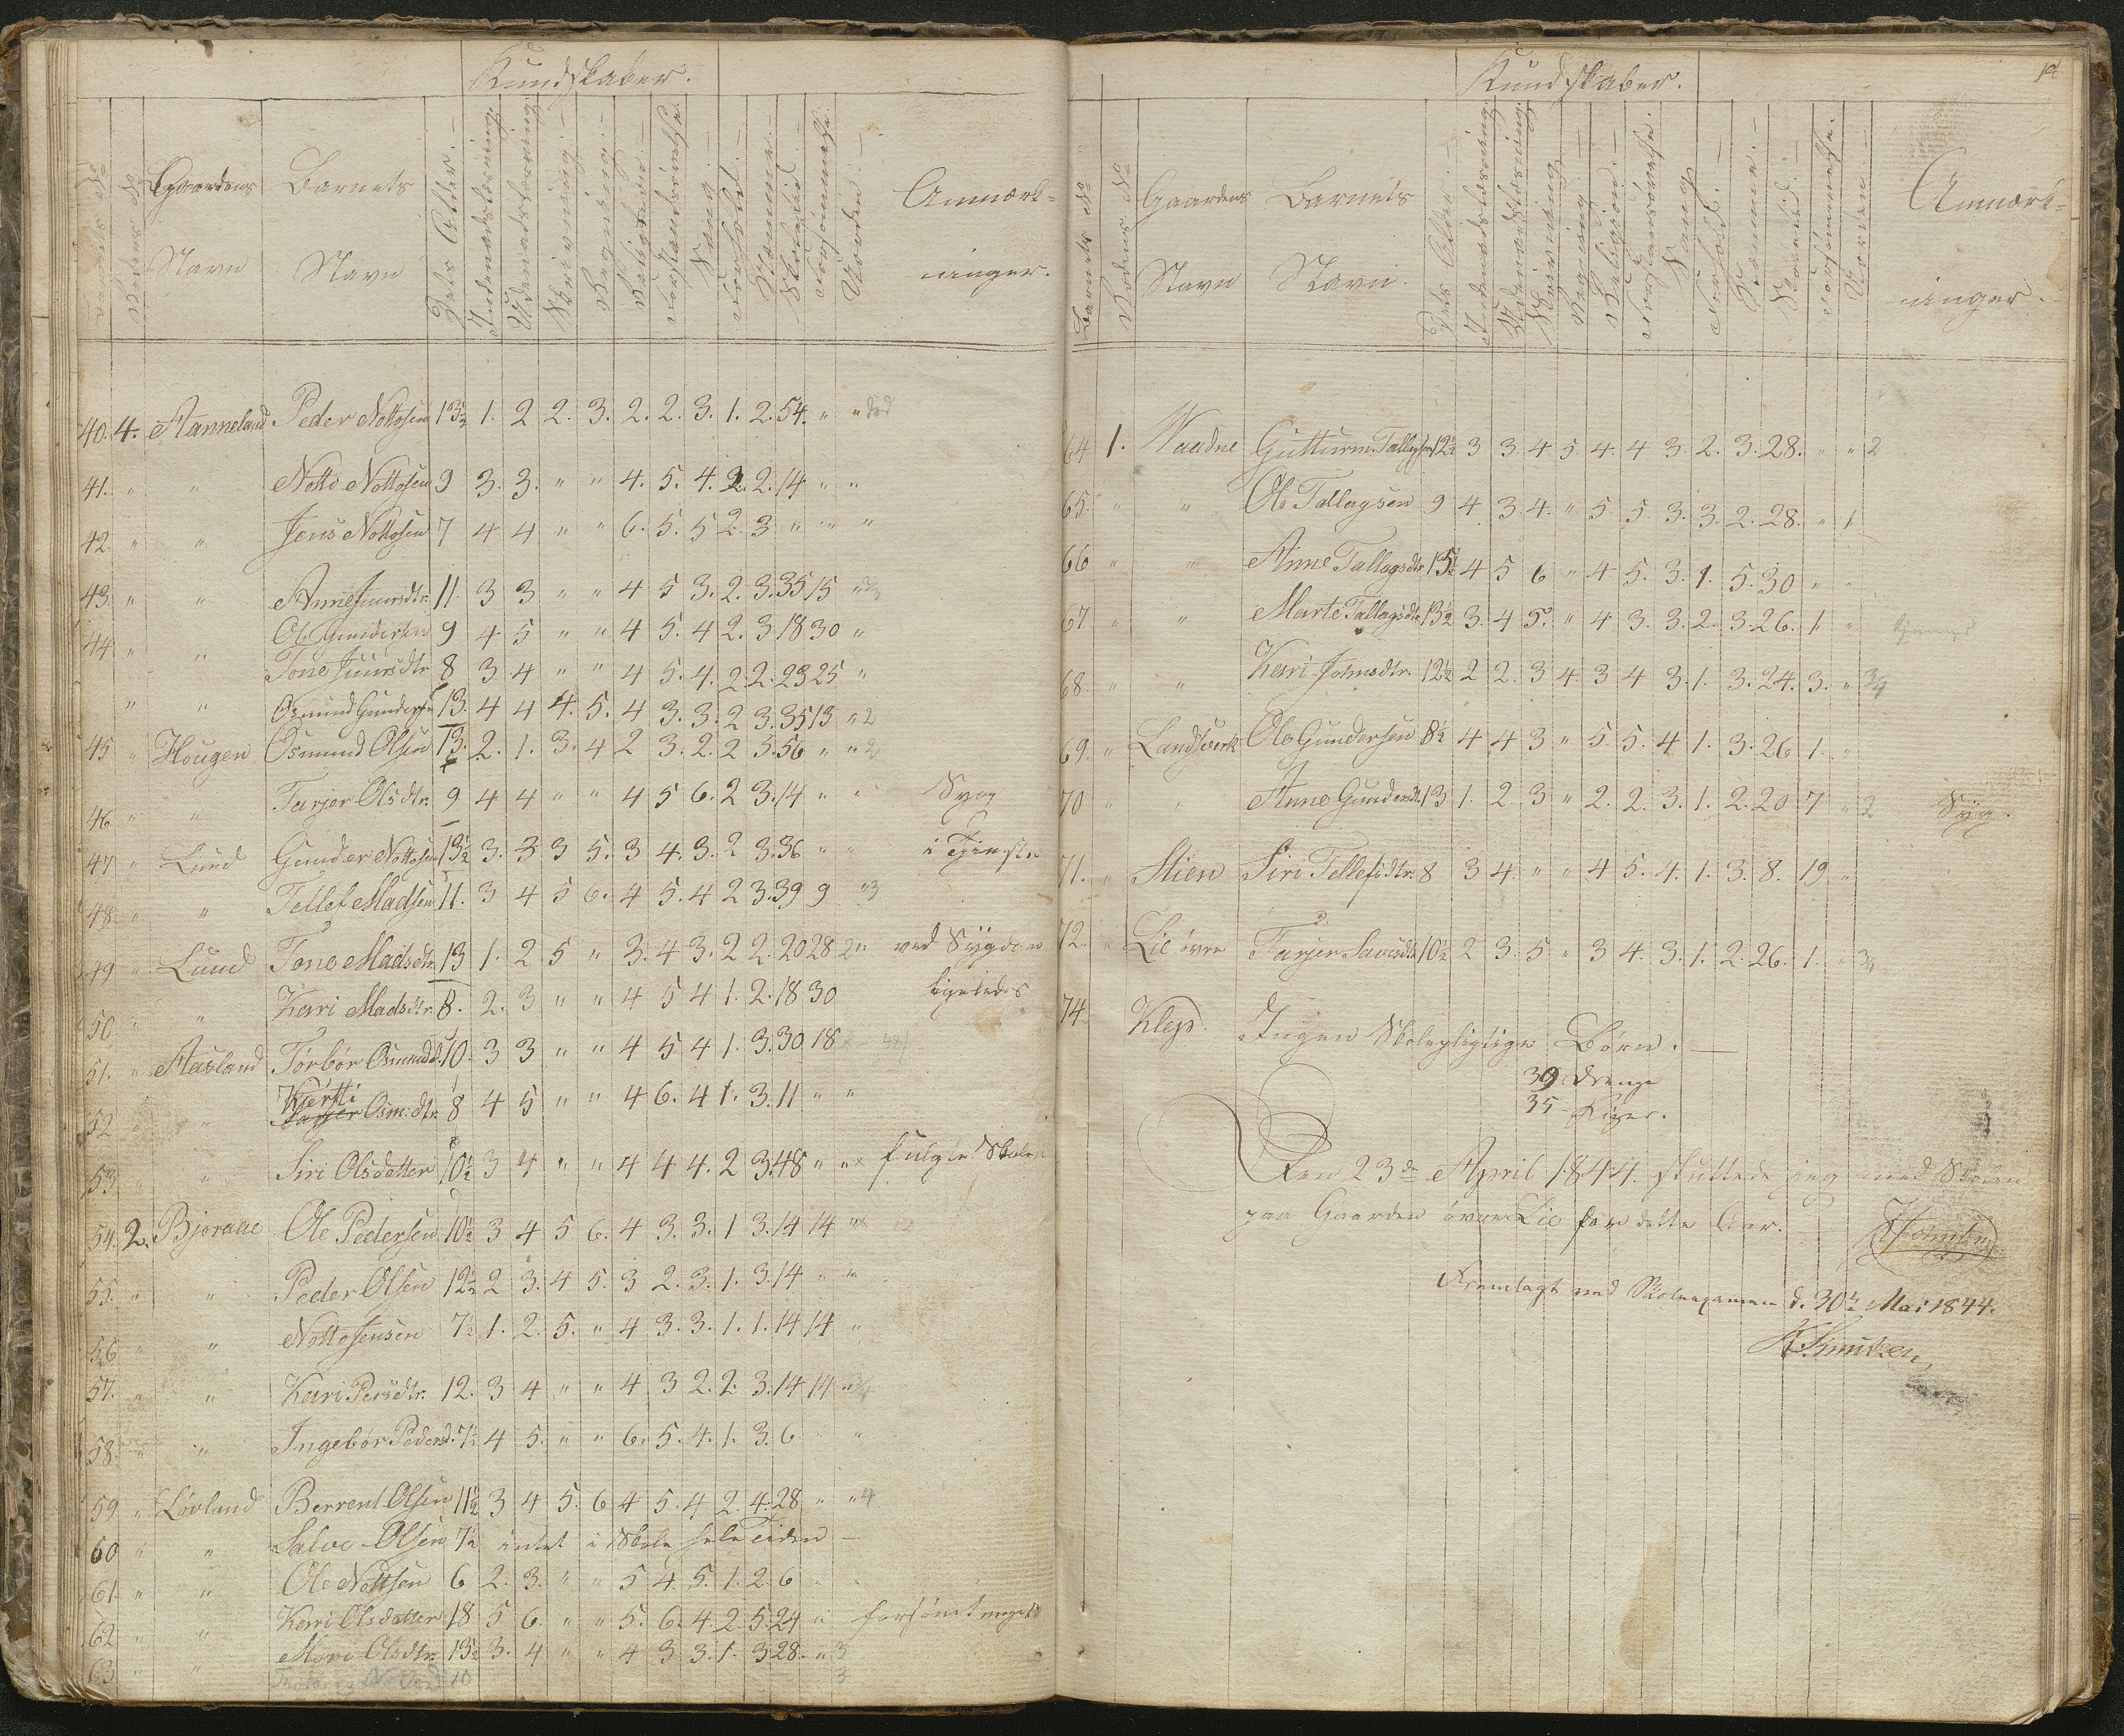 Kundskaber.
Gaardens Navn
Barnets Navn
Dets Alder.
Indenadslæsning.
Udenadslæsning
Skrivning
Regning
Religion
Forstandsøvelse.
Sang
Forhold.
Nemme.
Skoletid.
Forsømmelse.
Orden
Anmærkninger.
40. 4. Aanneland Peder Nottosen 13½ 1. 2 2. 3. 2. 2. 3. 1. 2. 54. " "
41. " " Notto Nottosen 9 3. 3. " " 4. 5. 4. 2. 2. 14 " "
42. " " Jens Nottosen 7 4 4 " " 6. 5. 5 2. 3 " " "
43. " " Anne Juursdtr. 11. 3 3 " " 4 5 3. 2. 3. 35 15 "
44 " " Ole Gundersen 9 4 5 " " 4 5. 4 2. 3 18 30 "
Tone Juursdtr 8 3 4 " " 4 5. 4. 2. 2. 23 25 "
" " Osmund Gundersen 13. 4 4 4. 5. 4 3. 3. 2 3. 35 13 " 2
45 " Hougen Osmund Olsen 13. 2. 1. 3. 4 2 3. 2. 2 3. 56 " " 2
46 " " Tarjer Olsdtr. 9 4 4 " " 4 5 6. 2 3. 14 " " Syg
47 " Lund Gunder Nottosen 13½ 3. 3 3 5. 3 4. 3. 2 3. 36 " " i Tjeneste
48 " " Tellef Madsen 11. 3 4 5 6. 4 5. 4 2 3. 39 9 " 3
49 " Lund Tone Madsdtr. 13 1. 2 5 " 3. 4 3. 2 2. 20 28 2 " ved Sygdom
50 " " Kari Madsdtr. 8. 2. 3 " " 4 5 4 1. 2. 18 30 ligeledes
51. " Aasland Torbør Osmundd. 10. 3 3 " " 4 5 4 1. 3. 30 18
52 " " Kjersti Osm:dtr. 8 4 5 " " 4 6. 4 1. 3. 11 " "
53 " " Siri Olsdatter 10½ 3 4 " " 4 4 4. 2 3. 48 " " fulgte Skolen
54. 2. Bjoraae Ole Pedersen 10½ 3 4 5 6. 4 3. 3. 1 3. 14 14 "
55. " " Peder Olsen 12½ 2 3. 4 5. 3 2. 3. 1. 3. 14 " "
56 " " Notto Jensen 7½ 1. 2. 5. " 4 3. 3. 1. 1. 14 14 "
57. " " Kari Persdtr. 12. 3 4 " " 4 3 2. 2. 3. 14 14 "
58. " " Ingebør Pedersd. 7½ 4 5. " " 6. 5. 4. 1. 3. 6 "
59 " Løvland Berrent Olsen 11½ 3 4 5. 6 4 5. 4 2. 4. 28 " " 4
60 " " Salve Olsen 7½ intet i Skole hele tiden
61. " " Ole Nottsen 6 2. 3. " " 5 4. 5. 1. 2. 6
62 " " Kari Olsdatter 18 5 6. " " 5. 6. 4. 2. 5. 24 " forsømt meget
63 " " Mari Olsdtr. 13½ 3. 4 " " 4 3 3. 1. 3 28. " 3
10 3
Kundskaber.
Barnets No
Rodens No
Gaardens Navn
Barnets Navn.
Dets Alder
Indenadslæsning.
Udenadslæsning
Skrivning
Regning
Religion.
Forstandsøvelse.
Sang
Forhold.
Nemme.
Skoletid.
Forsømmelse.
Orden
Anmærkninger.
64 1. Waadne Gutturm Tallagsen 12½ 3 3. 4 5. 4. 4 3. 2. 3. 28. " " 2
65. " " Ole Tallagsen 9 4 3 4. " 5. 5. 3. 3. 2. 28. " 1
66 " " Anne Tallagsdtr 15½ 4 5 6 " 4 5. 3. 1. 5. 30 " "
67 " " Marte Tallagsdtr 13½ 3. 4 5. " 4 3. 3. 2. 3. 26. 1. "
68. " " Kari Johnsdtr. 12½ 2 2. 3 4 3 4 3. 1. 3. 24. 3. "
69. " Landsverk Ole Gundersen 8½ 4 4 3 " 5. 5. 4 1. 3. 26 1. "
70 " " Anne Gundersdt. 13 1. 2. 3 " 2. 2. 3. 1. 2. 20 7 " 2 Syg.
71. " Stien Siri Tellefsdtr. 8 3 4. " " 4 5. 4. 1. 3. 8. 19 "
72. " Lie øvre Tarjer Savesdtr 10½ 2 3. 5 " 3 4. 3. 1. 2. 26. 1. "
74. Klep. Ingen Skolepligtige Børn.
39 Drenge
35 Piger.
Den 23de April 1844. sluttede jeg med Skolen
paa Gaarden øvre Lie for dette Aar.
Fremlagt ved Skoleexamen d. 30te Mai 1844.
K. Knutzen